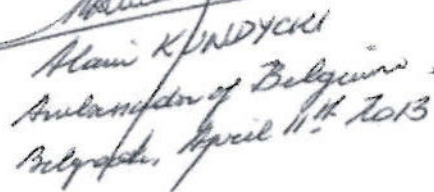 Alain KUNDYCKI
Ambassador of Belgium.
Belgrade, April 11th 2013